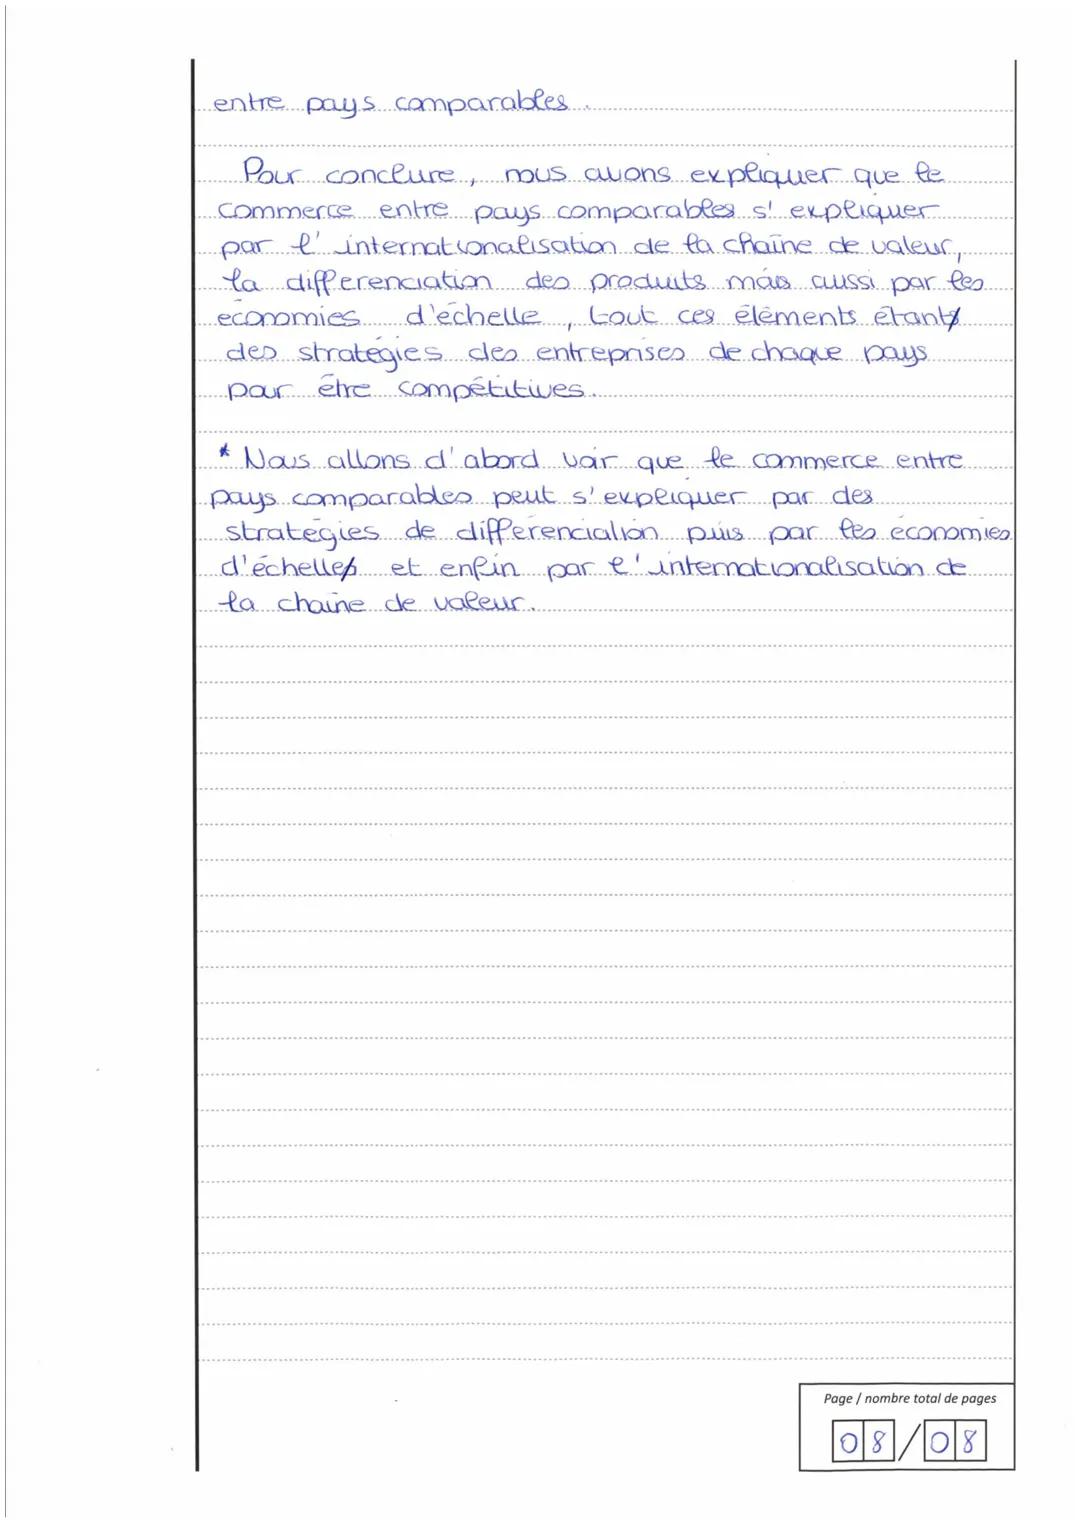 entre pays comparables.
Pour conclure, nous avons expliquer que le
commerce entre pays comparables s'expliquer
par l'internationalisation de la chaîne de valeur,
la differenciation des produits mais aussi par les
économies d'échelle, tout ces éléments étant
des stratégies des entreprises de chaque pays
pour être compétitives.
* Nous allons d'abord voir que le commerce entre
pays comparables peut s'expliquer par des
stratégies de differenciation puis par les économies
d'échelle et enfin par l'internationalisation de
la chaine de valeur.
Page / nombre total de pages
08/08